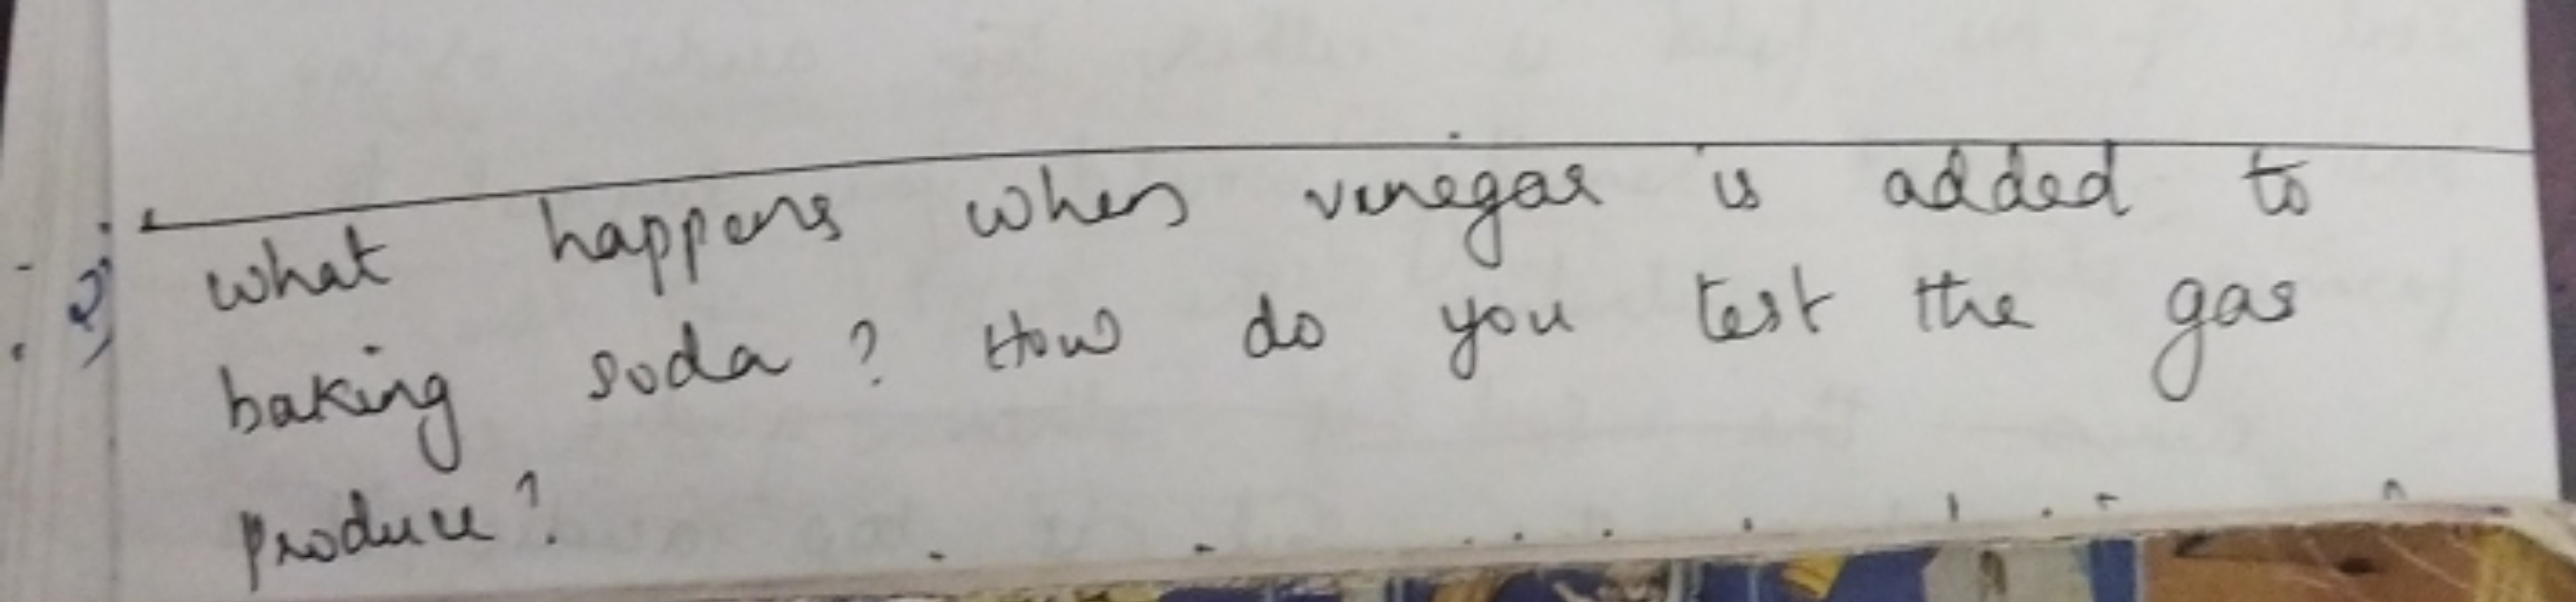 2) what happens when vinegar is added to
baking soda? How do you test the gas
produce?